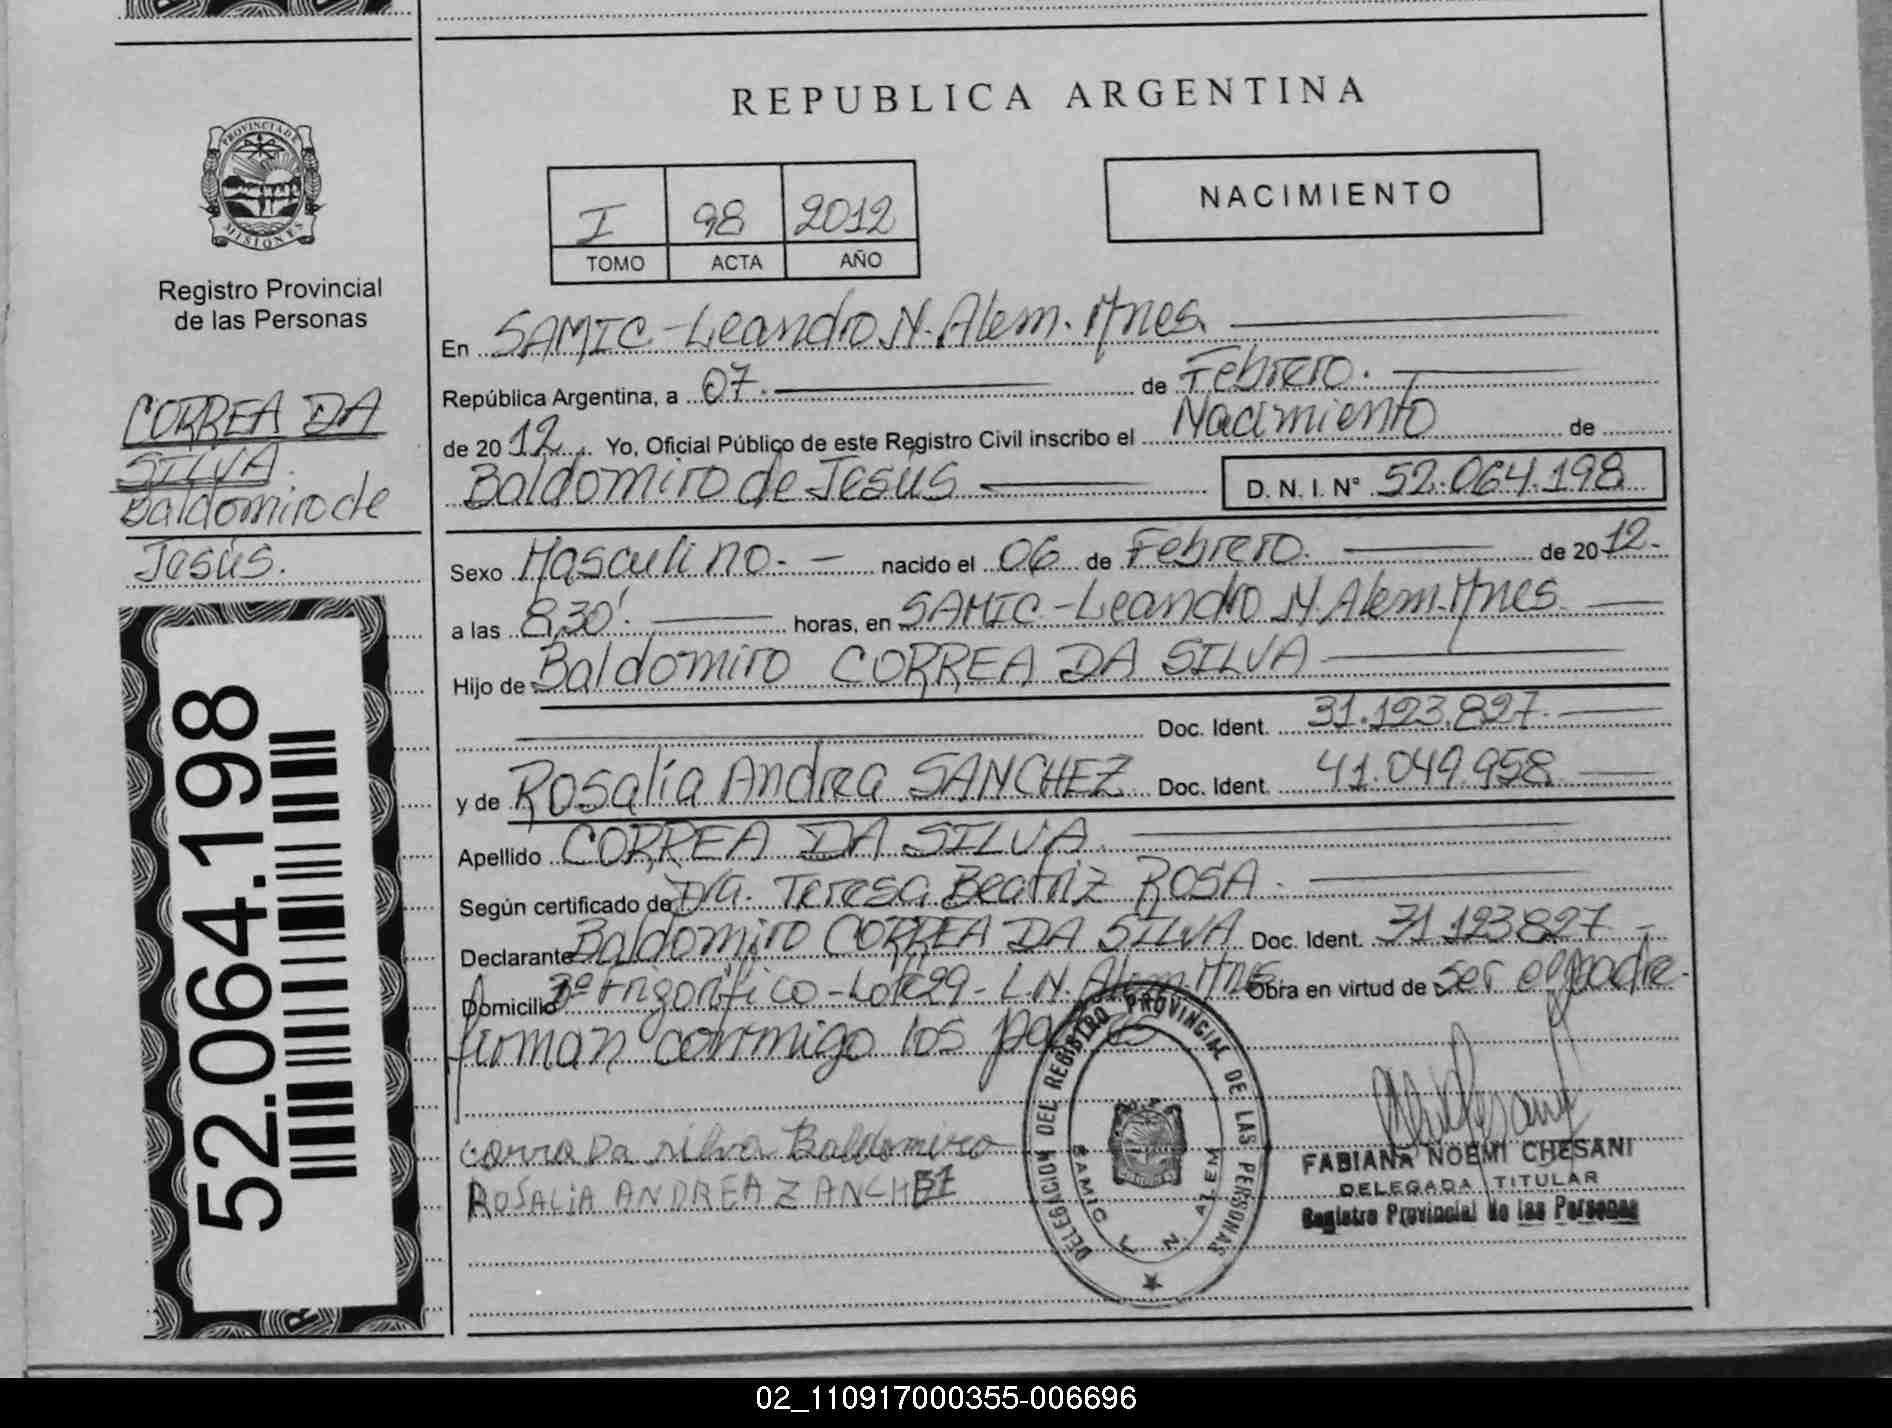 REPUBLICA ARGENTINA
PROVINCIA DE
MISIONES
Registro Provincial
de las Personas
CORREA DA
SILVA.
Baldomiro de
Jesús.
52.064.198
I 98 2012
TOMO ACTA AÑO
NACIMIENTO
En SAMIC-Leandro N. Alem. Mnes.
República Argentina, a 07. de Febrero.
de 2012. Yo, Oficial Público de este Registro Civil inscribo el Nacimiento de
Baldomiro de Jesús D. N. I. N° 52.064.198
Sexo Masculino.- nacido el 06 de Febrero. de 2012.-
a las 8,30'. horas, en SAMIC-Leandro N. Alem. Mnes.
Hijo de Baldomiro CORREA DA SILVA
Doc. Ident. 31.123.827.
y de Rosalía Andrea SANCHEZ Doc. Ident. 41.049.958
Apellido CORREA DA SILVA.
Según certificado de Dra. Teresa Beatriz ROSA.
Declarante Baldomiro CORREA DA SILVA Doc. Ident. 31.123.827.-
Domicilio Bº Frigorífico-Lote 99-L.N. Alem. Mnes. Obra en virtud de ser el padre.
firman conmigo los padres
correa Da silva Baldomiro
ROSALiA ANDREA ZANCHEZ
DELEGACION DEL REGISTRO PROVINCIAL DE LAS PERSONAS
SAMIC L. N. ALEM
FABIANA NOEMI CHESANI
DELEGADA TITULAR
Registro Provincial de las Personas
02_110917000355-006696